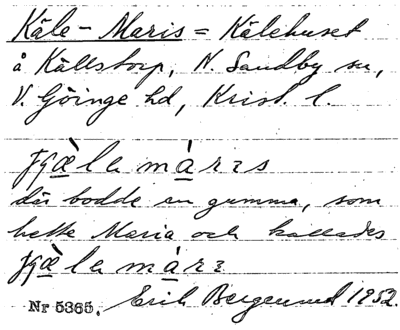 Käle-Maris = Kälehuset
å Källstorp, N. Sandby sn,
V. Göinge hd, Krist. l.
där bodde en gumma, som
hette Maria och kallades
Nr 5365. Erik Berggrund 1952.